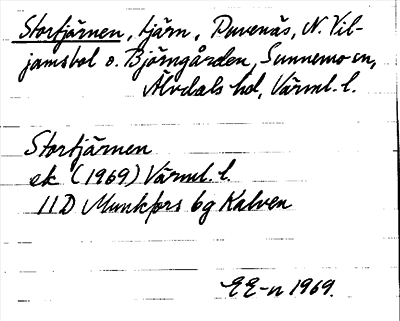 Stortjärnen, tjärn, Duvenäs, N. Vil-
jamsbol o. Björngården, Sunnemo sn,
Älvdals hd, Värml. l.
Stortjärnen
ek (1969) Värml. l.
11D Munkfors 6g Kalven
EE-n 1969.